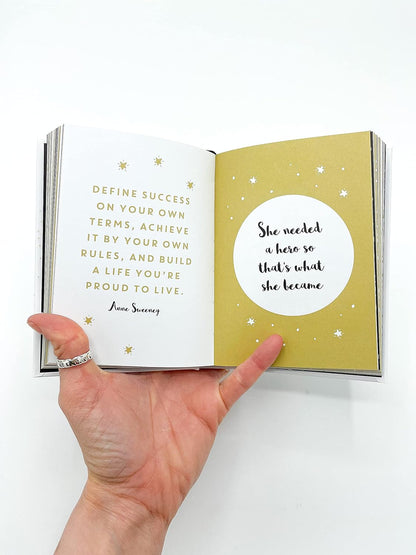 DEFINE SUCCESS
ON YOUR OWN
TERMS, ACHIEVE
IT BY YOUR OWN
RULES, AND BUILD
A LIFE YOU'RE
PROUD TO LIVE.
Anne Sweeney
She needed
a hero so
that's what
she became